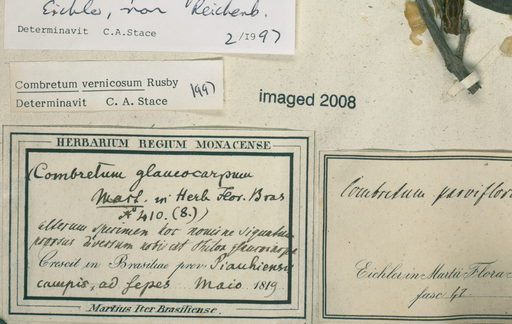 Eichler, non Reichenb.
Determinavit C.A.Stace
2/1997
Combretum vernicosum Rusby
Determinavit C. A. Stace
1997
imaged 2008
HERBARIUM REGIUM MONACENSE
(Combretum glaucocarpum
Mart. in Herb. Flor. Bras
No 410. (8.))
alterum specimen hoc nomine signatum
prorsus diversum est
Crescit in Brasiliae prov. Piauhiensi
campis, ad sepes. Maio 1819.
Martius Iter Brasiliense.
Combretum parviflor
Eichler in Martii Flora
fasc 42